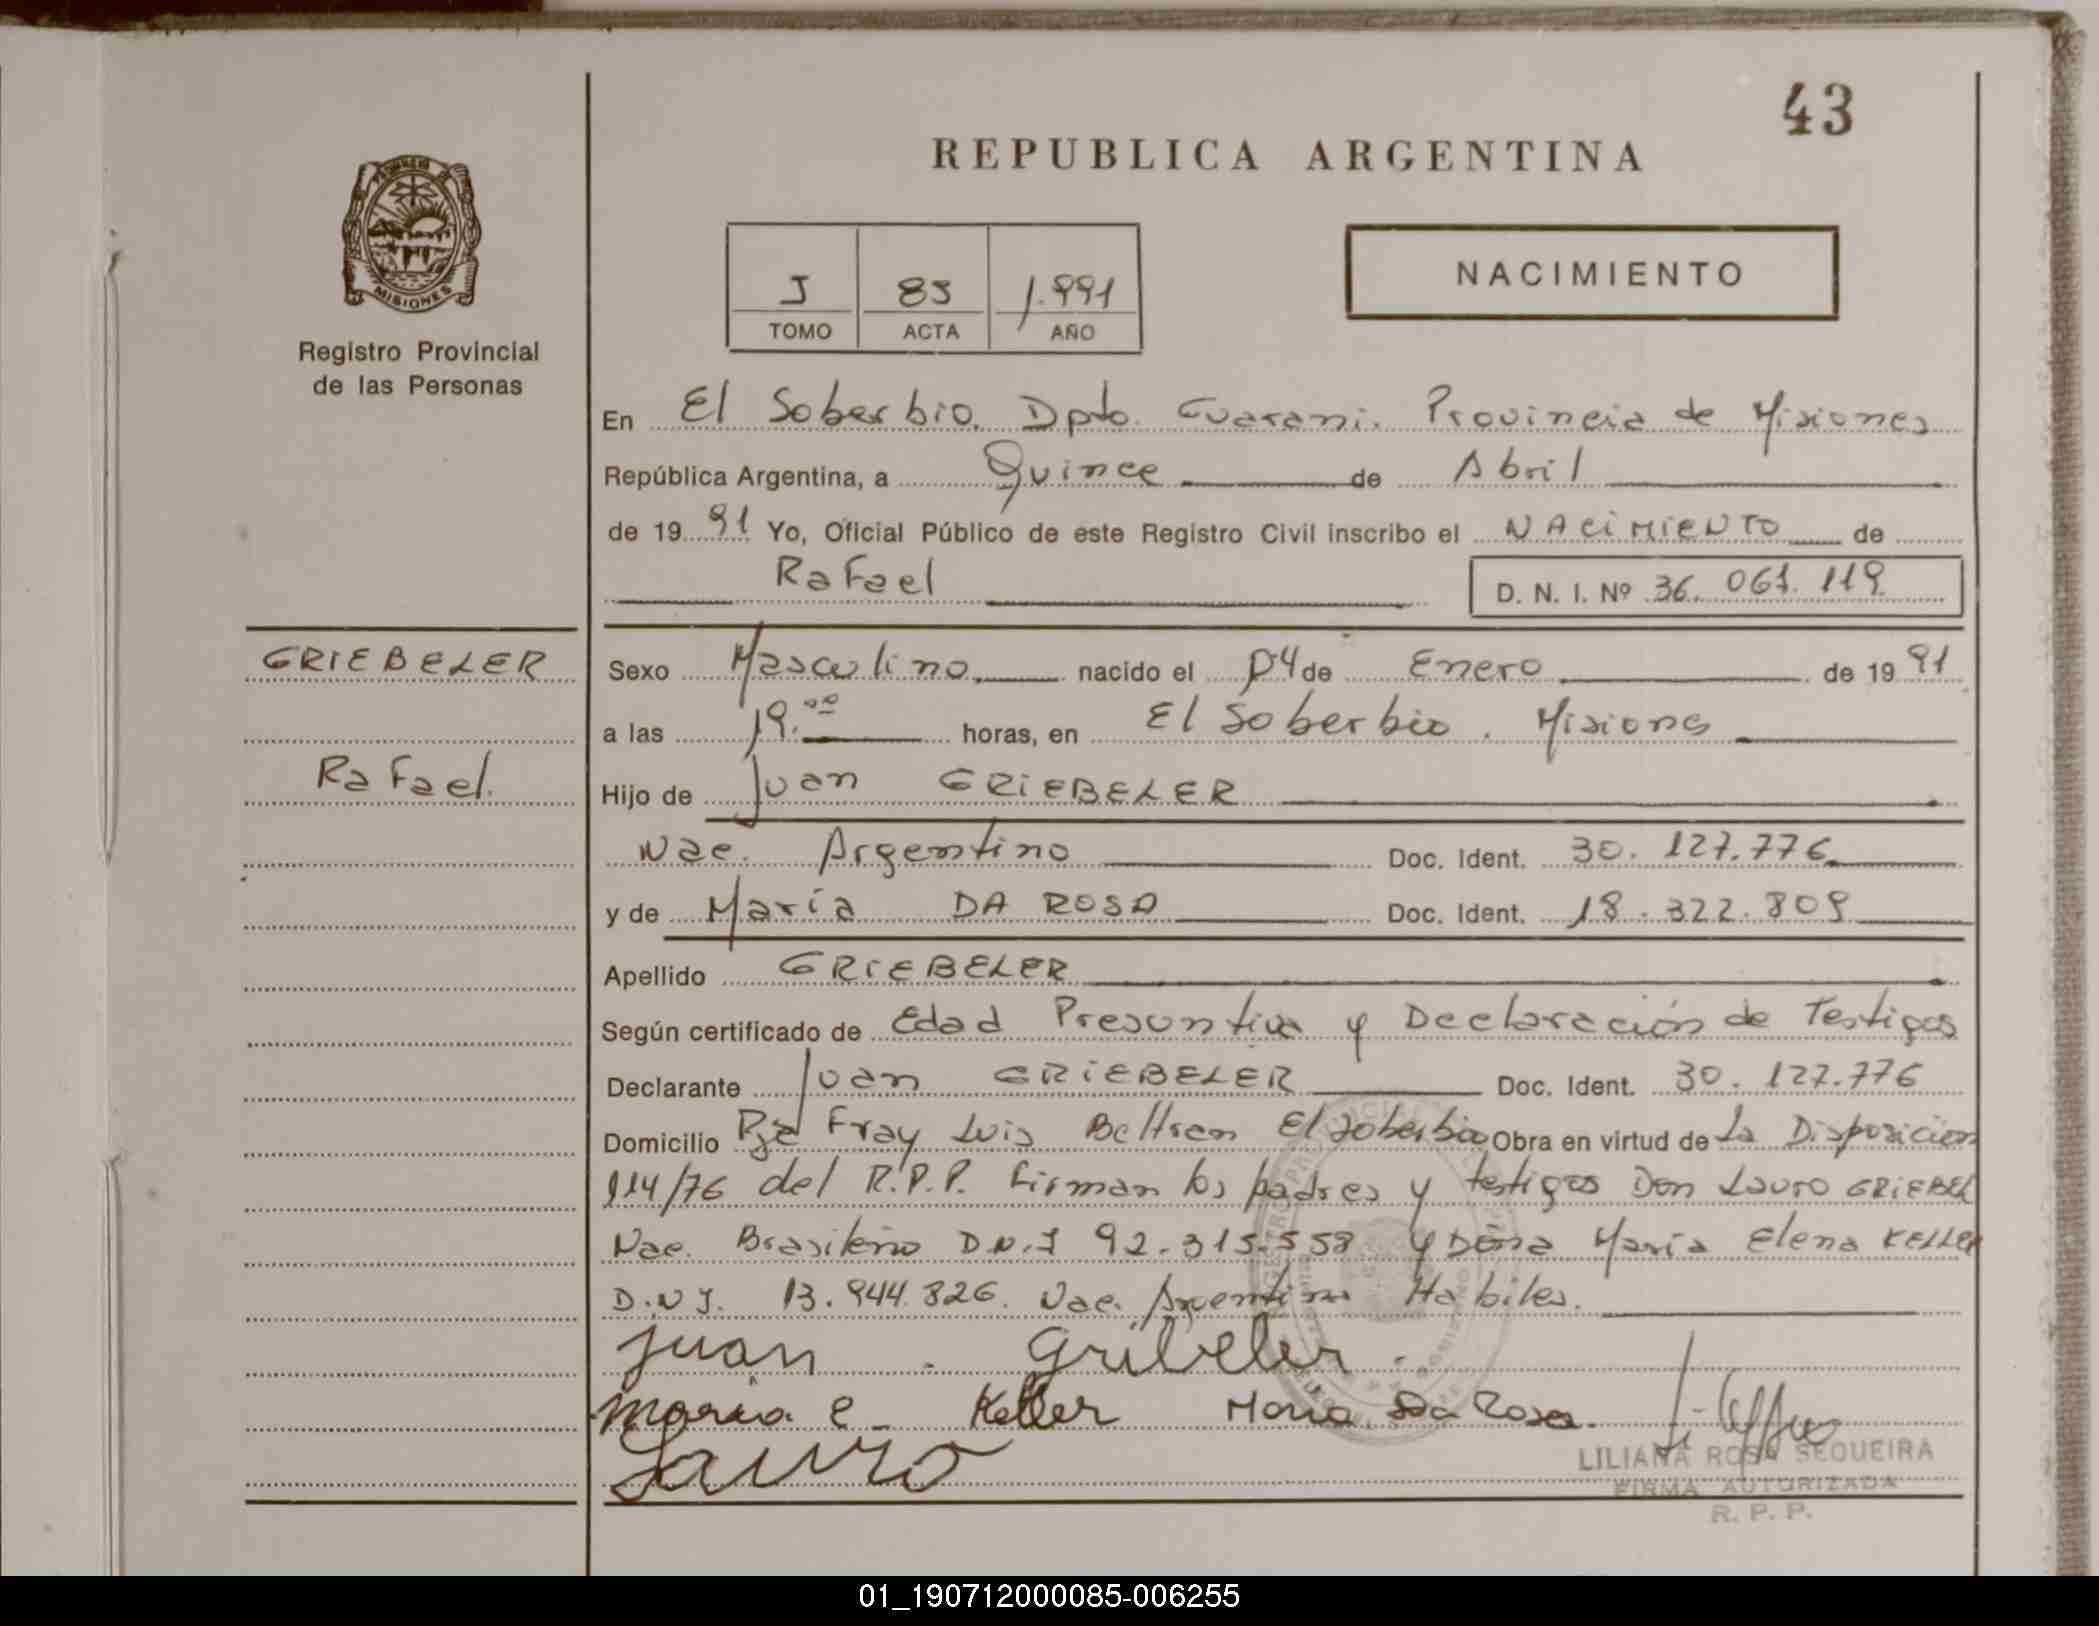 43
REPUBLICA ARGENTINA
MISIONES
Registro Provincial
de las Personas
J 85 1.991
TOMO ACTA AÑO
NACIMIENTO
En El Soberbio. Dpto. Guarani. Provincia de Misiones
República Argentina, a Quince de Abril
de 19 91 Yo, Oficial Público de este Registro Civil inscribo el NACIMIENTO de
Rafael D. N. I. Nº 36. 061. 119
GRIEBELER
Rafael.
Sexo Masculino nacido el 04 de Enero de 19 91
a las 19.00 horas, en El Soberbio. Misiones
Hijo de Juan GRIEBELER
Nac. Argentino Doc. Ident. 30. 127.776
y de María DA ROSA Doc. Ident. 18. 322. 809
Apellido GRIEBELER
Según certificado de Edad Presuntiva y Declaración de Testigos
Declarante Juan GRIEBELER Doc. Ident. 30. 127.776
Domicilio Pje Fray Luis Beltran El Soberbio Obra en virtud de La Disposicion
114/76 del R.P.P. Firman los padres y testigos Don Lauro GRIEBEL
Nac. Brasileño D.N.I 92.315.558 y Doña María Elena KELLER
D.N.I. 13.944.826. Nac. Argentina Habiles.
Juan Gribeler
Maria e Keller Maria Da Rosa.
Lauro
LILIANA ROSA SEQUEIRA
FIRMA AUTORIZADA
R. P. P.
01_190712000085-006255